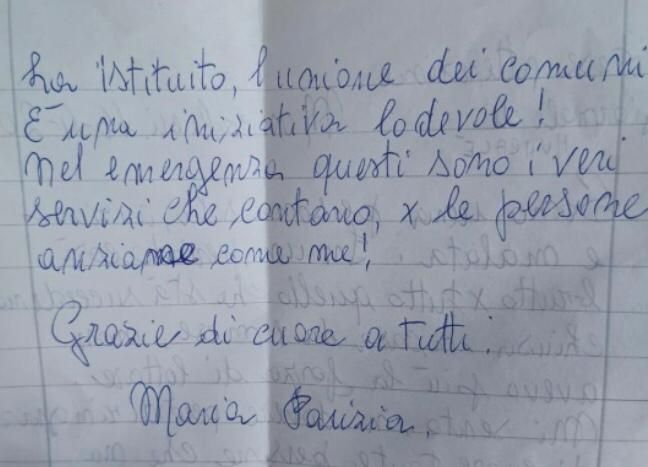 ha istituito, l'unione dei comuni
È una iniziativa lodevole!
nel emergenza questi sono i veri
servizi che contano, x le persone
anziane come me!
Grazie di cuore a tutti.
Maria